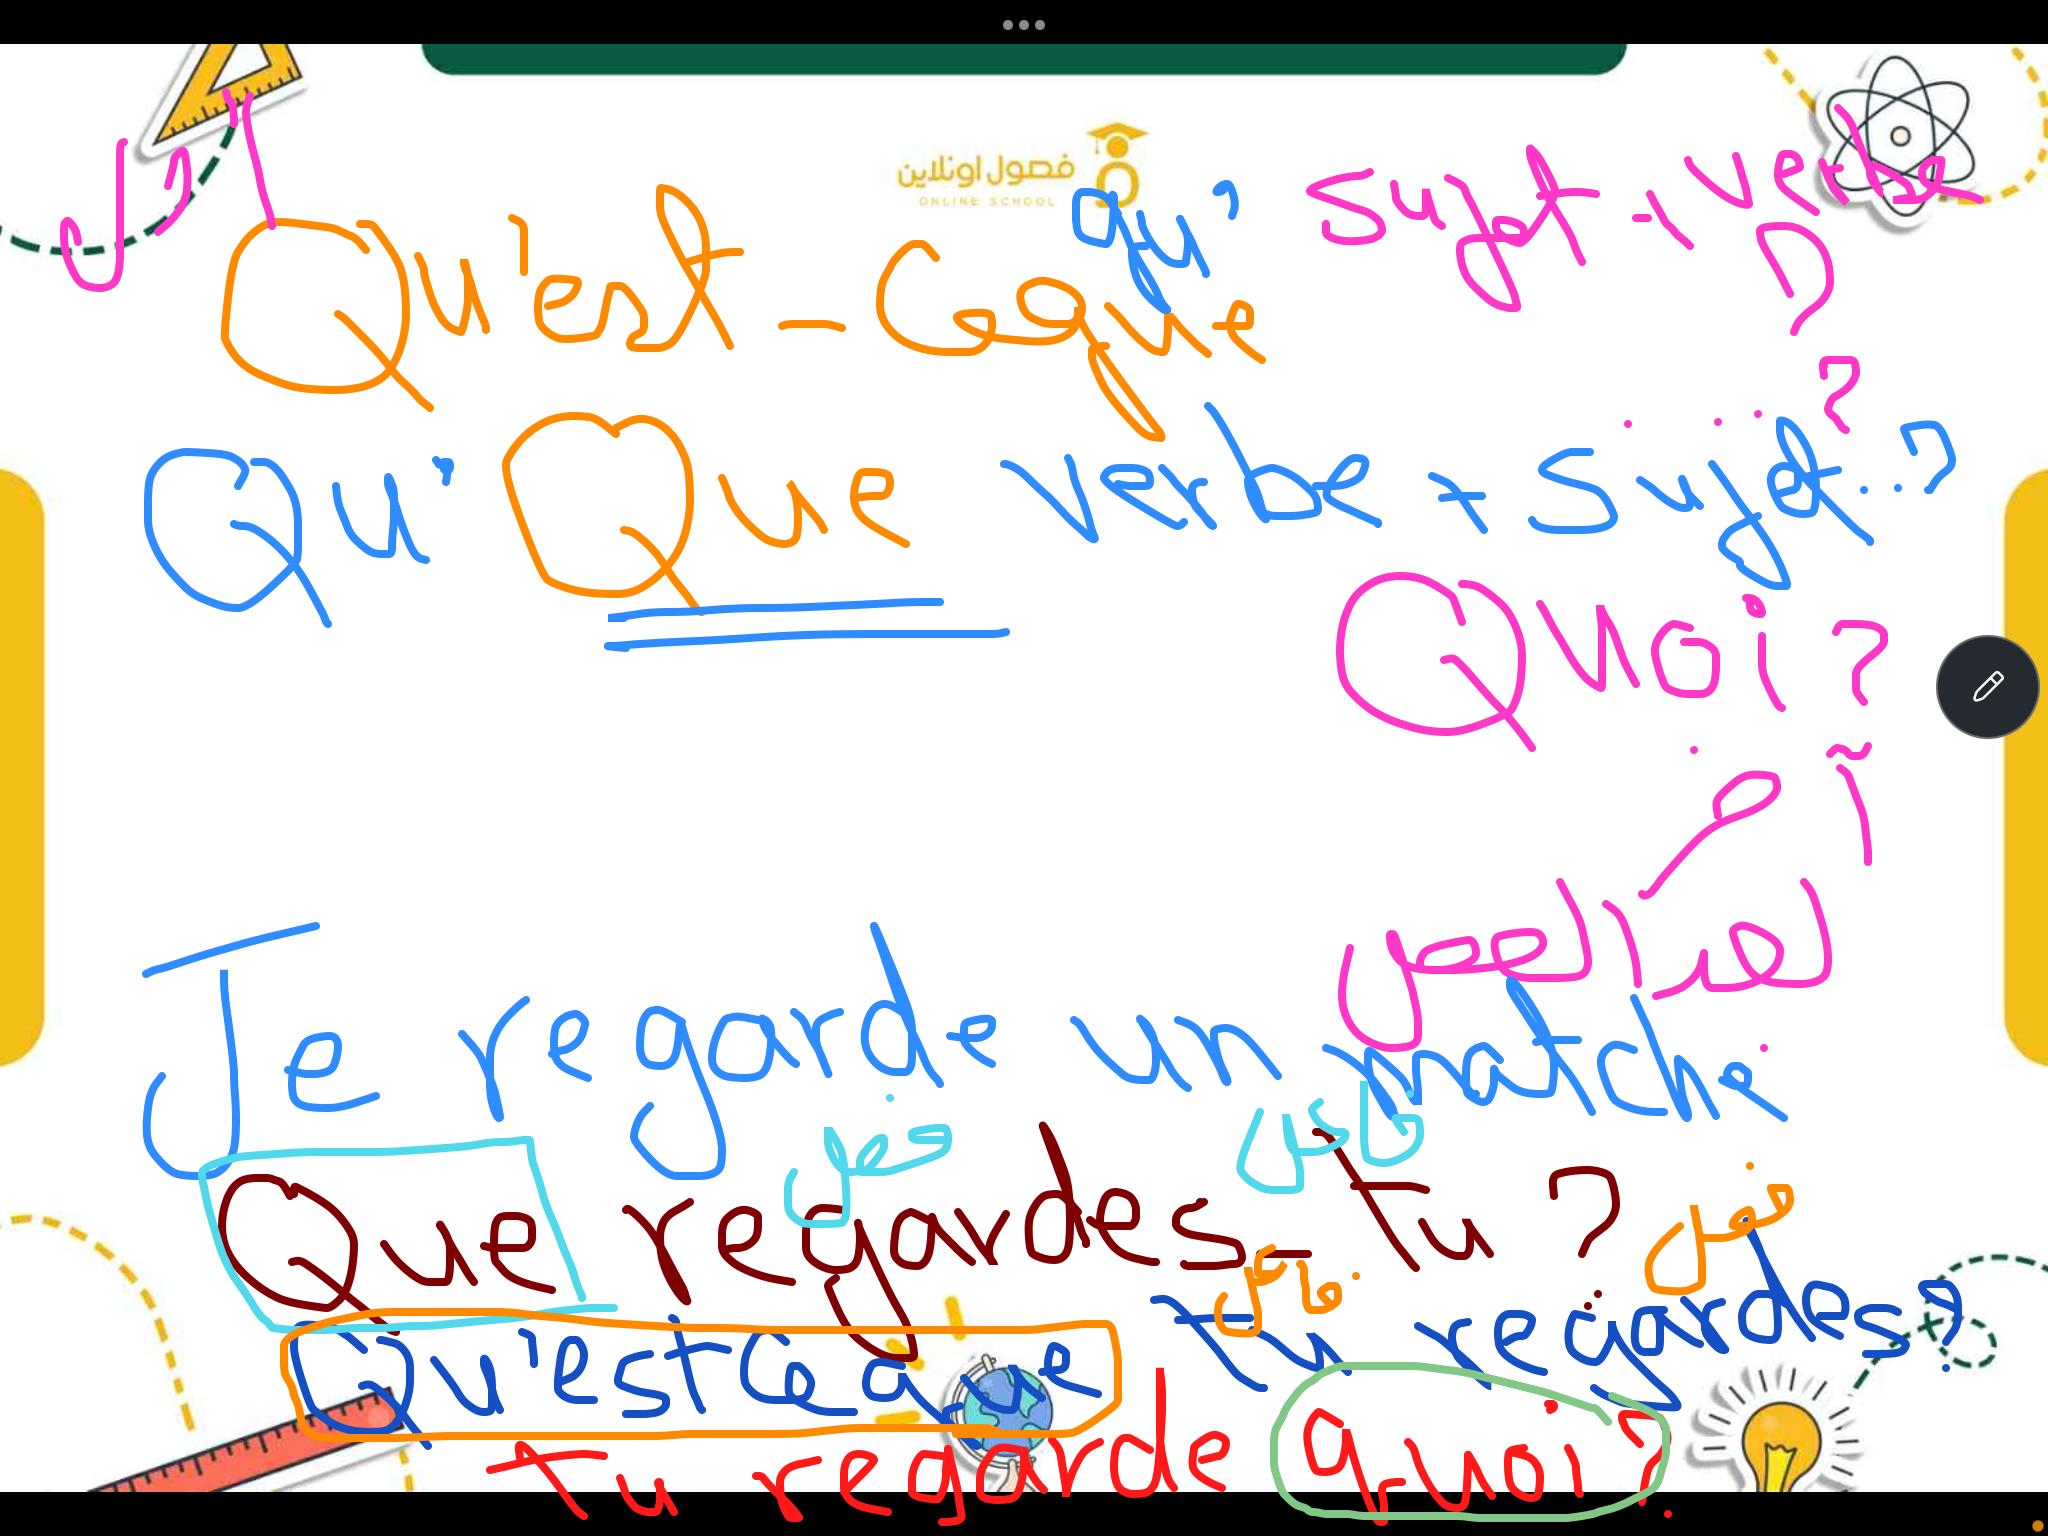 فصول اونلاين
ONLINE SCHOOL
Qu'est-ce que qu' sujet + verbe
...?
Qu' Que verbe + sujet..?
Quoi?
آخر
Je regarde un matche
فعل فاعل
Que regardes-tu?
فاعل فعل
Qu'est ce que tu regardes?
tu regarde quoi?